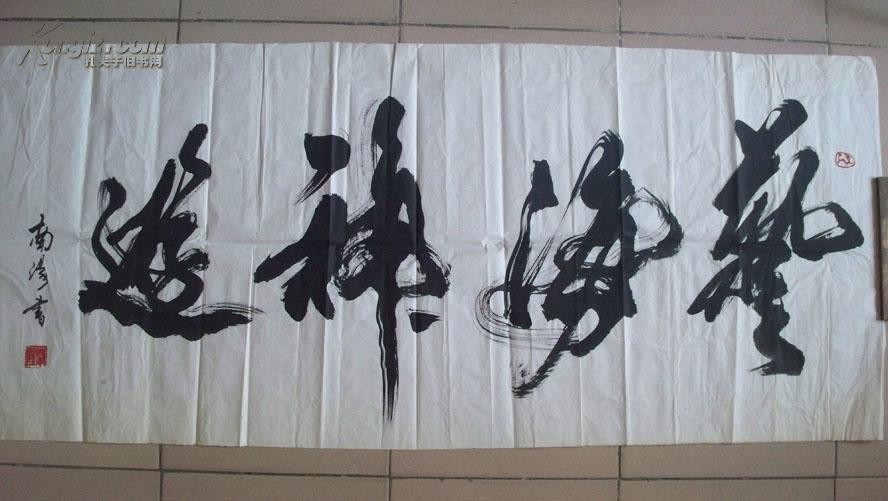 藝海神遊
南濤書
Kongfz.com
孔夫子旧书网